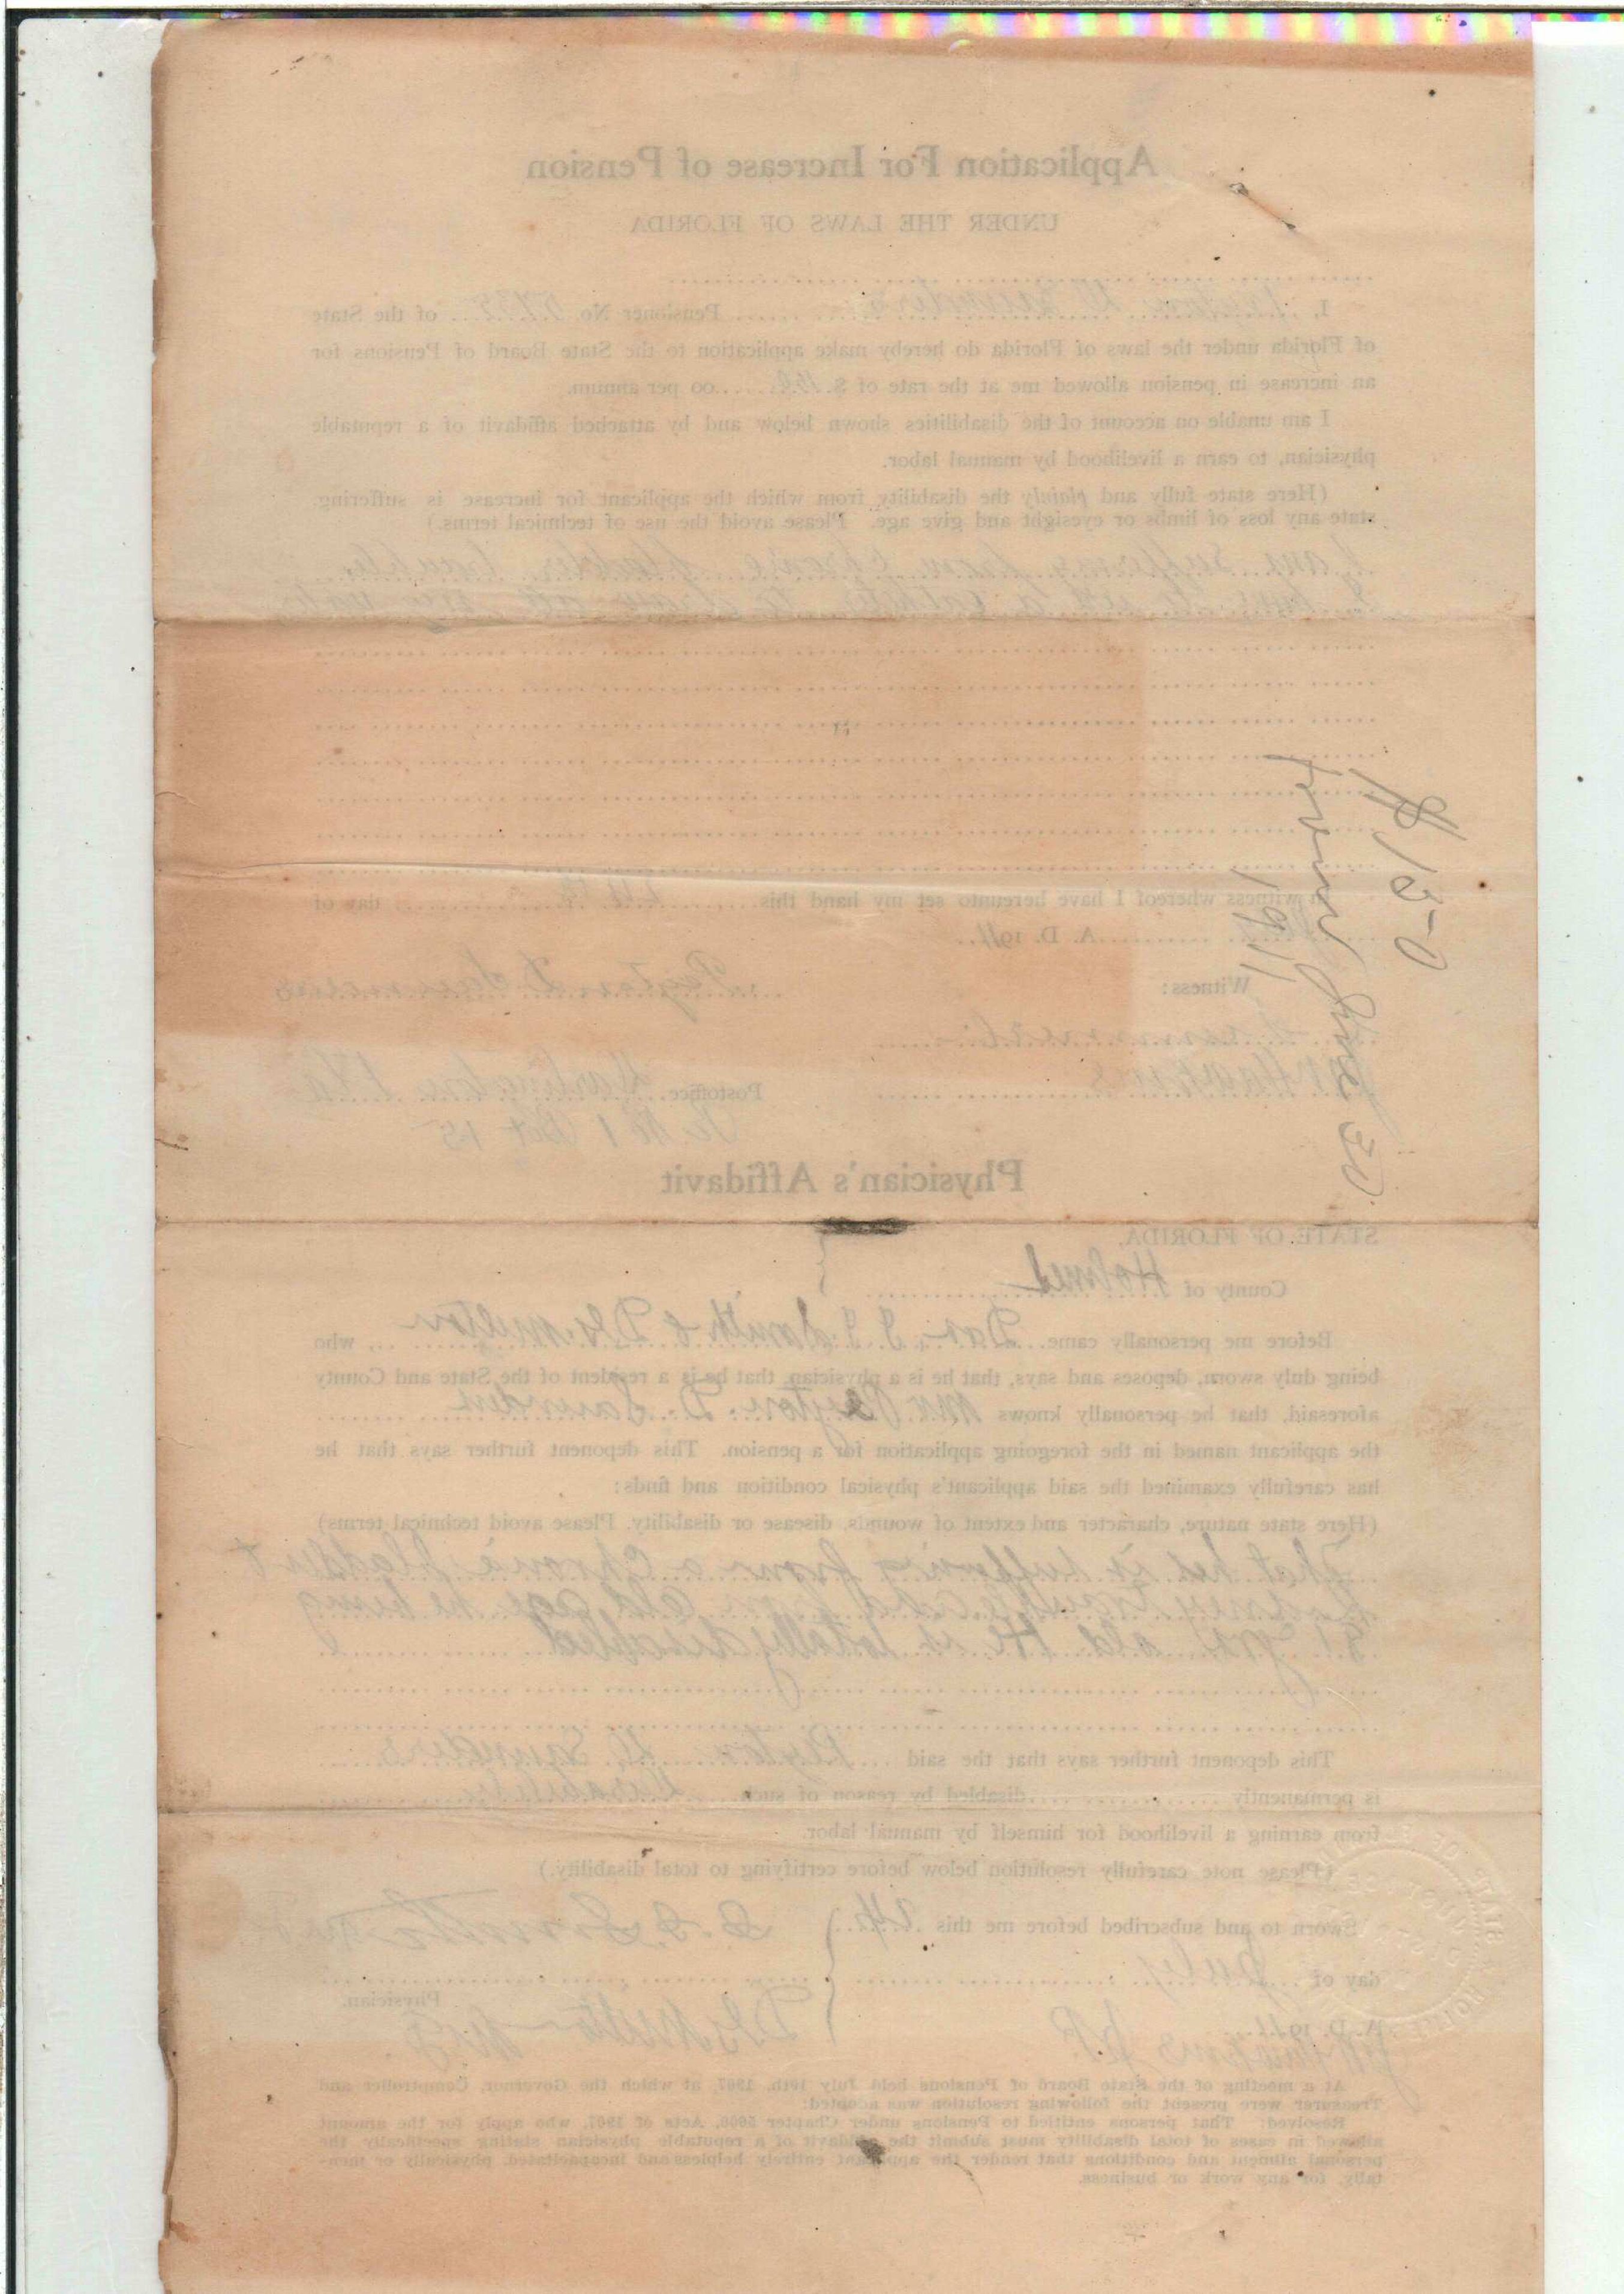 Application For Increase of Pension
UNDER THE LAWS OF FLORIDA
I, Peyton D Saunders Pensioner No. of the State
of Florida under the laws of Florida do hereby make application to the State Board of Pensions for
an increase in pension allowed me at the rate of $ 00 per annum.
I am unable on account of the disabilities shown below and by attached affidavit of a reputable
physician, to earn a livelihood by manual labor.
(Here state fully and plainly the disability from which the applicant for increase is suffering.
state any loss of limbs or eyesight and give age. Please avoid the use of technical terms.)
I am suffering from chronic bladder trouble
to draw all my water
In witness whereof I have hereunto set my hand this 24th day of
A. D. 1911
Witness: Peyton D Saunders
J W Hawkins Postoffice Fla
R No 1 Box 15
$150
from June 30
1911
Physician's Affidavit
STATE OF FLORIDA,
County of Holmes
Before me personally came Drs. Smith & Milton who
being duly sworn, deposes and says, that he is a physician, that he is a resident of the State and County
aforesaid, that he personally knows Mr Peyton D. Saunders
the applicant named in the foregoing application for a pension. This deponent further says that he
has carefully examined the said applicant's physical condition and finds:
(Here state nature, character and extent of wounds, disease or disability. Please avoid technical terms)
That he is suffering from a chronic bladder &
Kidney trouble and from old age he being
yrs old He is totally disabled
This deponent further says that the said Peyton D. Saunders
is permanently disabled by reason of such disability
from earning a livelihood for himself by manual labor.
(Please note carefully resolution below before certifying to total disability.)
Sworn to and subscribed before me this 24 Smith
day of July
Physician.
A. D. 1911 Milton M.D.
J W Hawkins J.P.
At a meeting of the State Board of Pensions held July 19th, 1907, at which the Governor, Comptroller and
Treasurer were present the following resolution was adopted:
Resolved: That persons entitled to Pensions under Chapter 5600, Acts of 1907, who apply for the amount
allowed in cases of total disability must submit the affidavit of a reputable physician stating specifically the
personal ailment and conditions that render the applicant entirely helpless and incapacitated, physically or men-
tally, for any work or business.